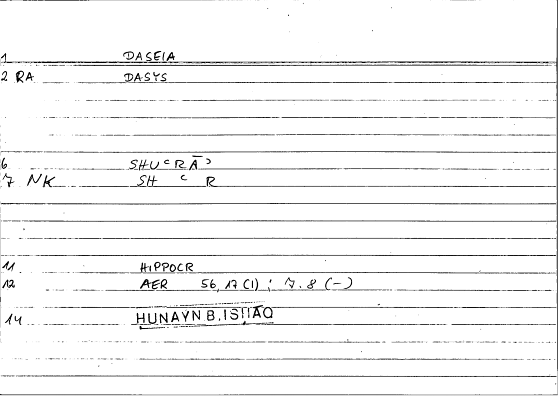 1 DASEIA
2 RA DASYS
6 SHUᶜRĀᵓ
7 NK SH ᶜ R
11 HIPPOCR
12 AER 56,17(1) ; 7.8 (-)
14 HUNAYN B.ISHĀQ